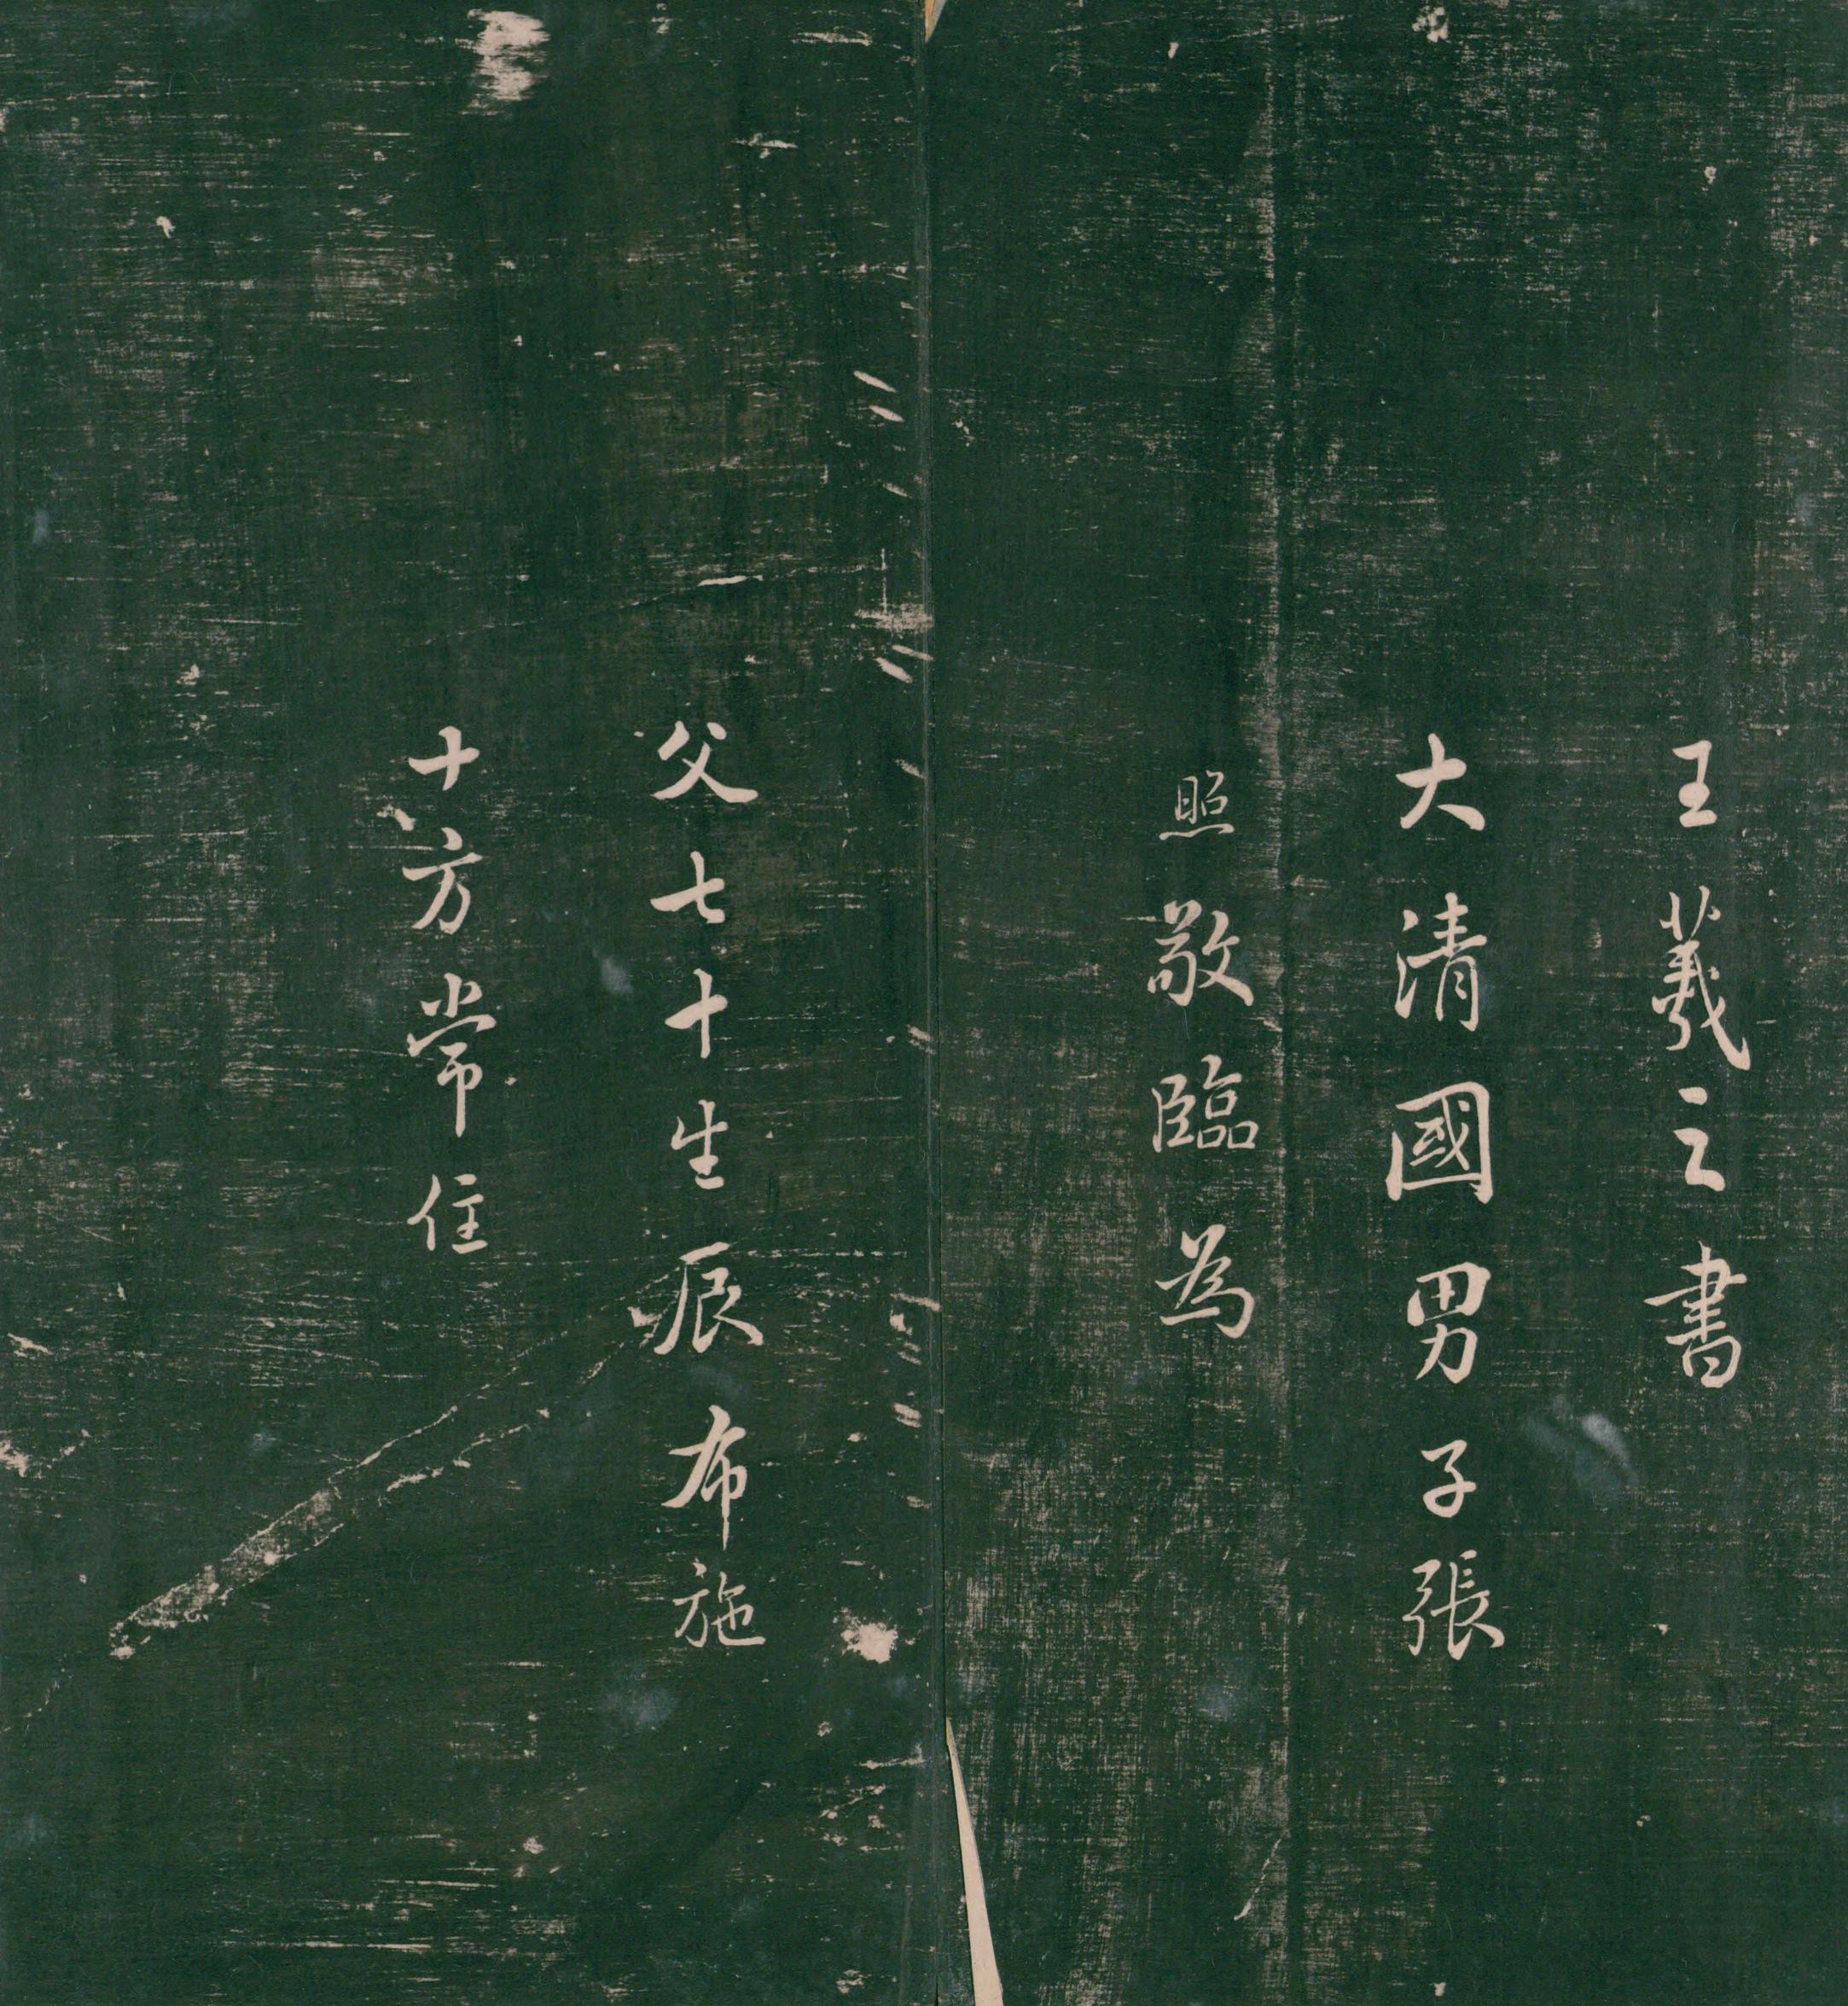 王羲之書
大清國男子張
照敬臨為
父七十生辰布施
十方常住